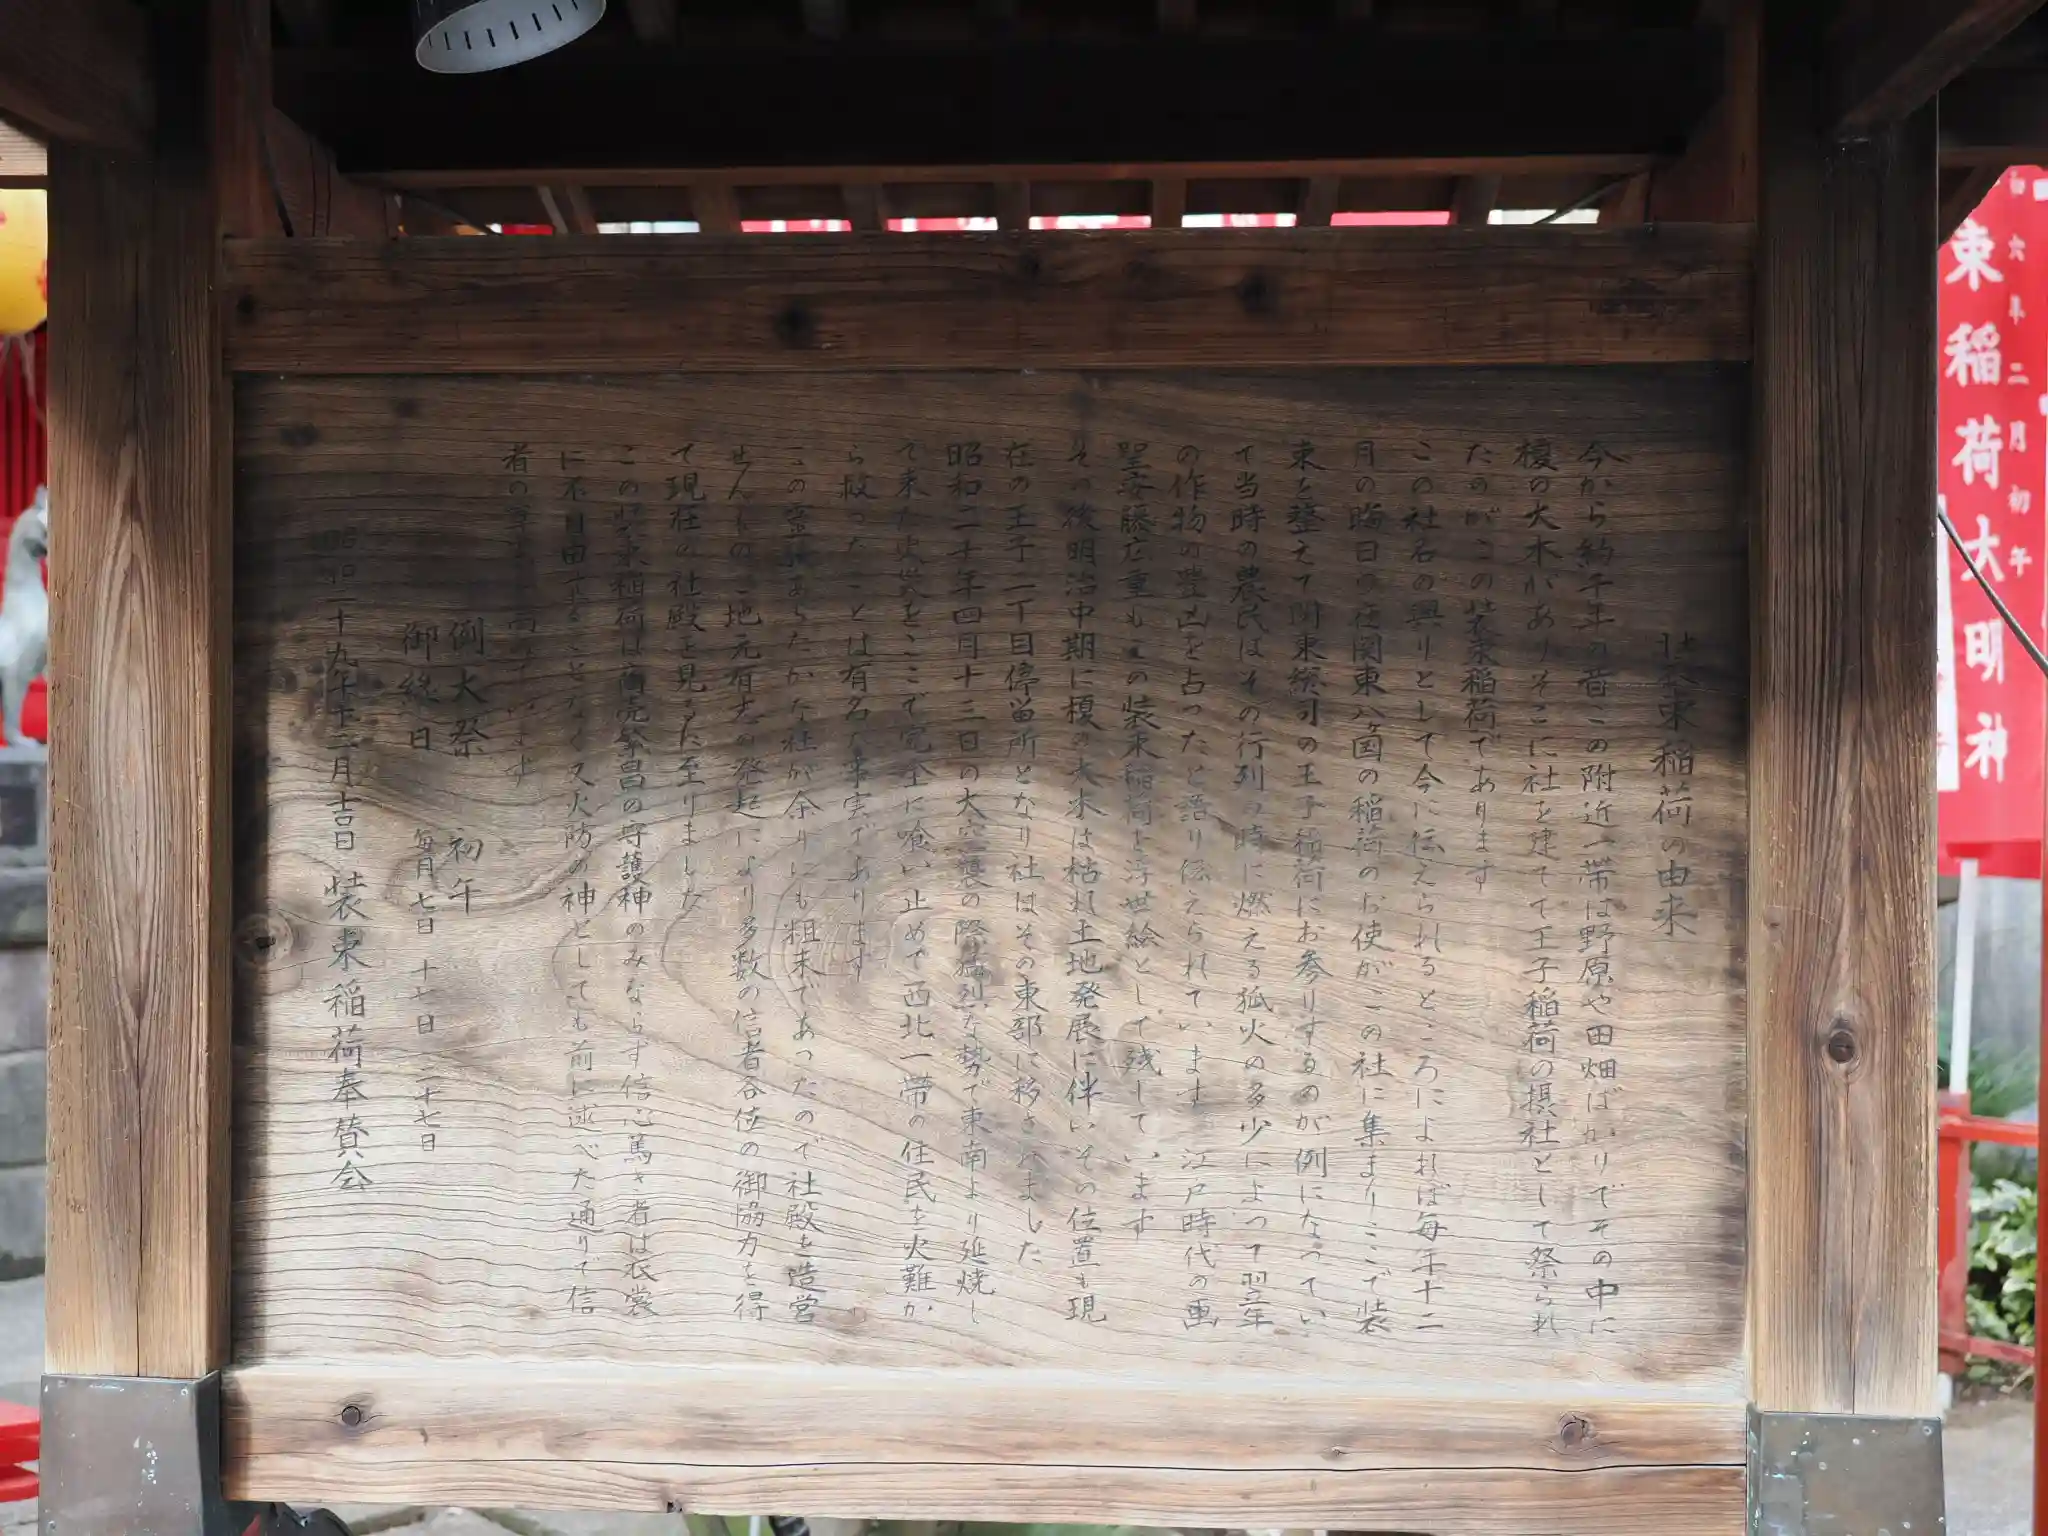 装束稲荷の由来
今から約千年の昔この附近一帯は野原や田畑ばかりでその中に
榎の大木がありそこに社を建てて王子稲荷の摂社として祭られ
たのがこの装束稲荷であります
この社名の興りとして今に伝えられるところによれば毎年十二
月の晦日の夜関東八ヶ国の稲荷のお使がこの社に集まりここで装
束を整えて関東総司の王子稲荷にお参りするのが例になってい
て当時の農民はその行列の時に燃える狐火の多少によって翌年
の作物の豊凶を占ったと語り伝えられています 江戸時代の画
聖安藤広重もこの装束稲荷を浮世絵として残しています
その後明治中期に榎の大木は枯れ土地発展に伴いその位置も現
在の王子二丁目停留所となり社はその東部に移されました
昭和二十年四月十三日の大空襲の際猛烈な勢で東南より延焼し
て来た火災をここで完全に喰い止めて西北一帯の住民を火難か
ら救ったことは有名な事実であります
この霊験あらたかな社が余りにも粗末であったので社殿を造営
せんものと地元有志の発起により多数の信者各位の御協力を得
て現在の社殿を見るに至りました
この装束稲荷は商売繁昌の守護神のみならず信心篤き者は衣裳
に不自由することなく又火防の神としても前に述べた通りで信
者の尊崇を
例大祭 初午
御縁日 毎月七日 十七日 二十七日
昭和二十九年十二月吉日 装束稲荷奉賛会
六年二月初午
束稲荷大明神